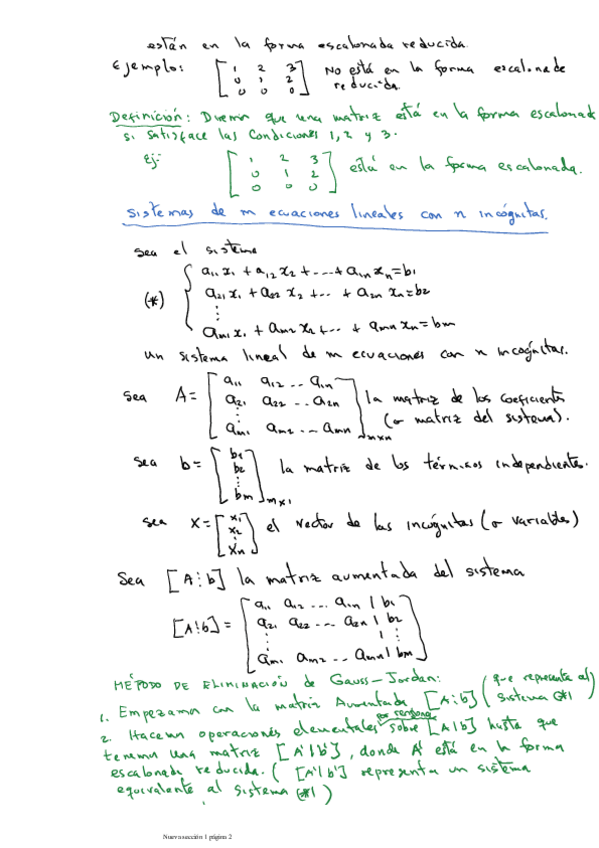 están en la forma escalonada reducida.
Ejemplo: [1 2 3 No está en la forma escalonada
0 1 2 reducida.
0 0 0]
Definición: Diremos que una matriz está en la forma escalonada
si satisface las condiciones 1, 2 y 3.
Ej: [1 2 3
0 1 2 está en la forma escalonada.
0 0 0]
Sistemas de m ecuaciones lineales con n incógnitas.
sea el sistema
a11 x1 + a12 x2 + ---- + a1n xn = b1
(*) a21 x1 + a22 x2 + --- + a2n xn = b2
⋮
am1 x1 + am2 x2 + --- + amn xn = bm
un sistema lineal de m ecuaciones con n incógnitas.
sea A = [a11 a12 -- a1n la matriz de los coeficientes
a21 a22 -- a2n (o matriz del sistema).
⋮
am1 am2 -- amn]mxn
sea b = [b1
b2 la matriz de los términos independientes.
⋮
bm]mx1
sea x = [x1 el vector de las incógnitas (o variables)
x2
⋮
xn]
Sea [A⋮b] la matriz aumentada del sistema
[A¦b] = [a11 a12 --- a1n | b1
a21 a22 --- a2n | b2
⋮ ⋮ ⋮ ⋮
am1 am2 -- amn | bm]
MÉTODO DE ELIMINACIÓN de Gauss-Jordan:
1. Empezamos con la matriz Aumentada [A⋮b] (que representa al sistema (*))
2. Hacemos operaciones elementales por renglones sobre [A|b] hasta que
tenemos una matriz [A'|b'], donde A' está en la forma
escalonada reducida. ([A'|b'] representa un sistema
equivalente al sistema (*))
Nueva sección 1 página 2